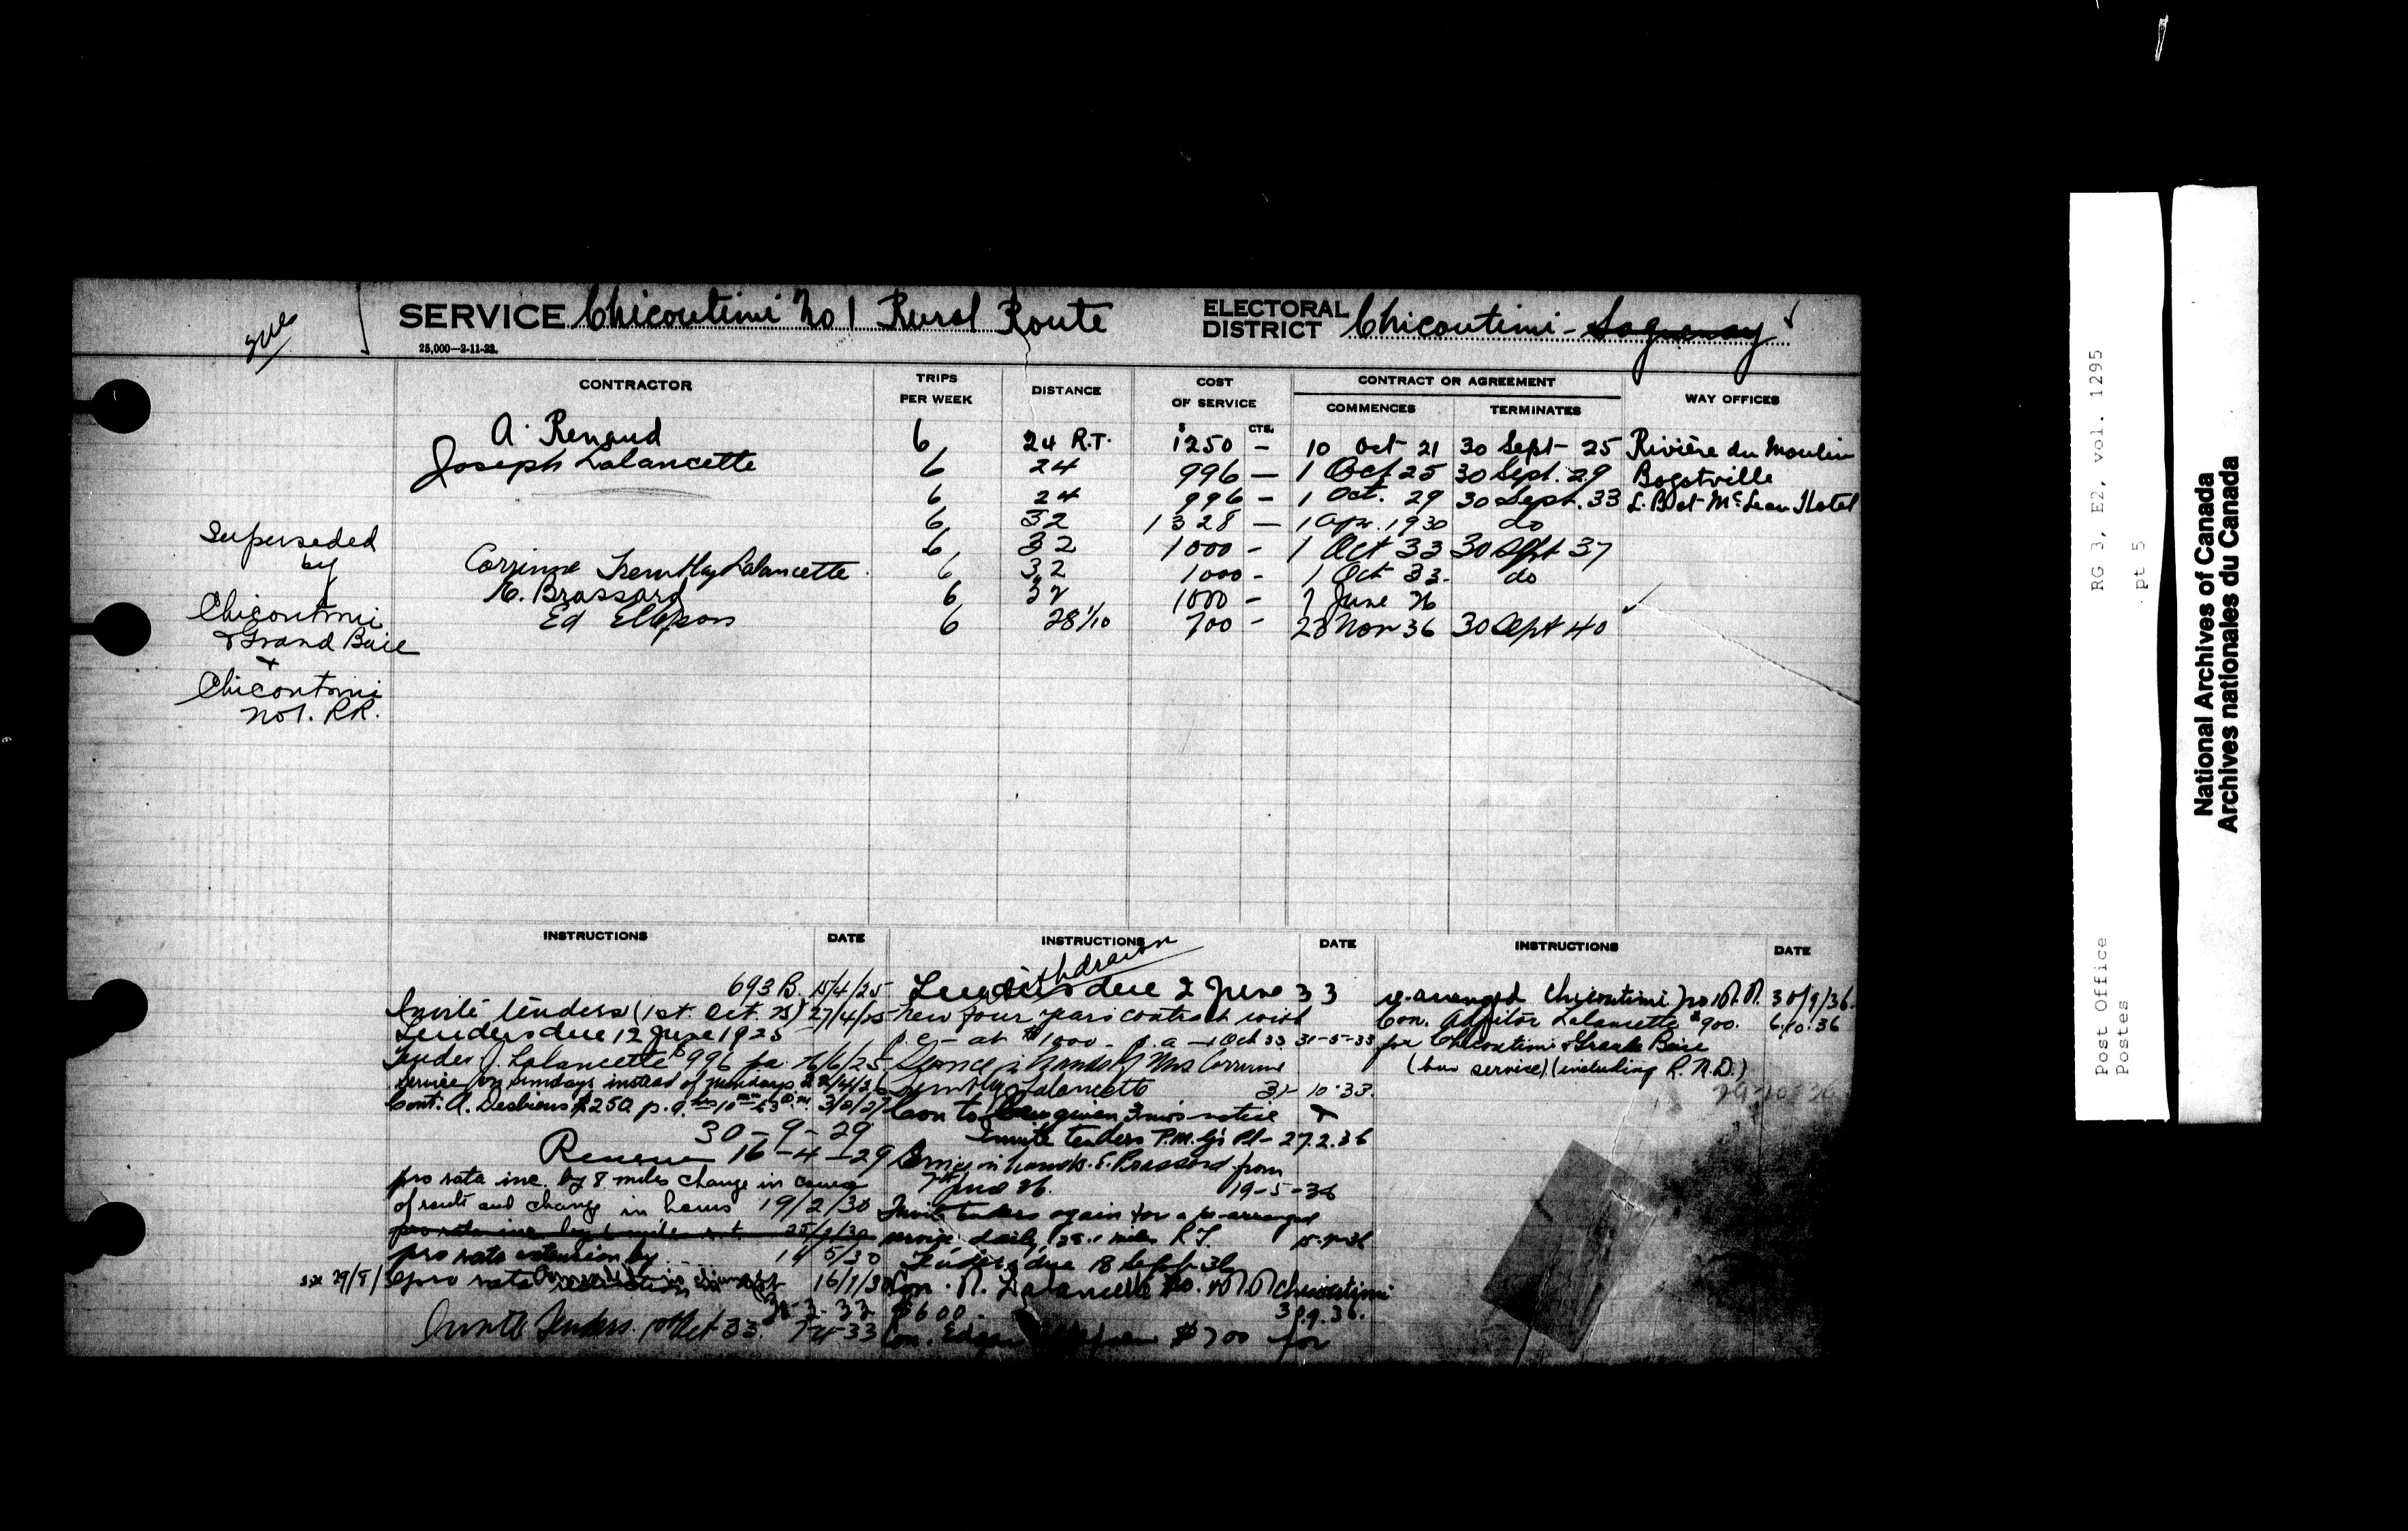 SERVICE Chicoutimi No 1 Rural Route
ELECTORAL DISTRICT Chicoutimi - Saguenay
25,000—2-11-22.
CONTRACTOR TRIPS PER WEEK DISTANCE COST OF SERVICE CONTRACT OR AGREEMENT COMMENCES TERMINATES WAY OFFICES
$ CTS.
A. Renaud 6 24 R.T. 1250 — 10 Oct 21 30 Sept 25 Rivière du Moulin
Joseph Lalancette 6 24 996 — 1 Oct 25 30 Sept. 29 Bagotville
6 24 996 — 1 Oct. 29 30 Sept. 33 McLean Hotel
6 32 1328 — 1 Apr. 1930 do
6 32 1000 - 1 Oct 33 30 Sept 37
Corrinne Tremblay Lalancette 6 32 1000 - 1 Oct 33 - do
E. Brassard 6 32 1000 - 7 June 36
Ed 6 28 1/10 700 - 28 Nov 36 30 Sept 40
Superseded
by
Chicoutimi
& Grand Baie
+
Chicoutimi
No 1. RR.
INSTRUCTIONS DATE
693 B. 15/4/25
Invite tenders (1st. Oct. 25) 27/4/25
Tenders due 12 June 1925
Tender J. Lalancette $996 pa 16/6/25
Service on Sundays instead of Mondays
Cont. A. Desbiens $250 p.a.
30-9-29
Renew 16-4-29
pro rata inc. by 8 miles change in
of route and change in hours 19/2/30
pro rata extension by 14/5/30
pro rata
30-3-33
Invite Tenders. 1 Oct 33. 7-4-33
INSTRUCTIONS DATE
withdrawn
Tenders due 2 June 33
New four years contract with
p.c. - at $1000 - p.a - 1 Oct 33 31-5-33
Service in hands of Mrs Corrinne
Tremblay Lalancette 31-10-33.
Con to be given 3 mos notice
Invite tenders P.M.G's 27.2.36
Service in hands. E. Brassard from
7th June 36. 19-5-36
Invite tenders again for a re-arranged
service daily, 28.1 miles R.T.
Tenders due 18 Sept. 36
Con. Lalancette No. 1 RR Chicoutimi
$600. 30.9.36.
Con. $700 for
INSTRUCTIONS DATE
re-arranged Chicoutimi No 1 R.R. 30/9/36.
Con. Lalancette $900. 6.10.36
for Chicoutimi & Grande Baie
(bus service) (including R.M.D.)
RG 3, E2, vol. 1295
pt 5
Post Office
Postes
National Archives of Canada
Archives nationales du Canada